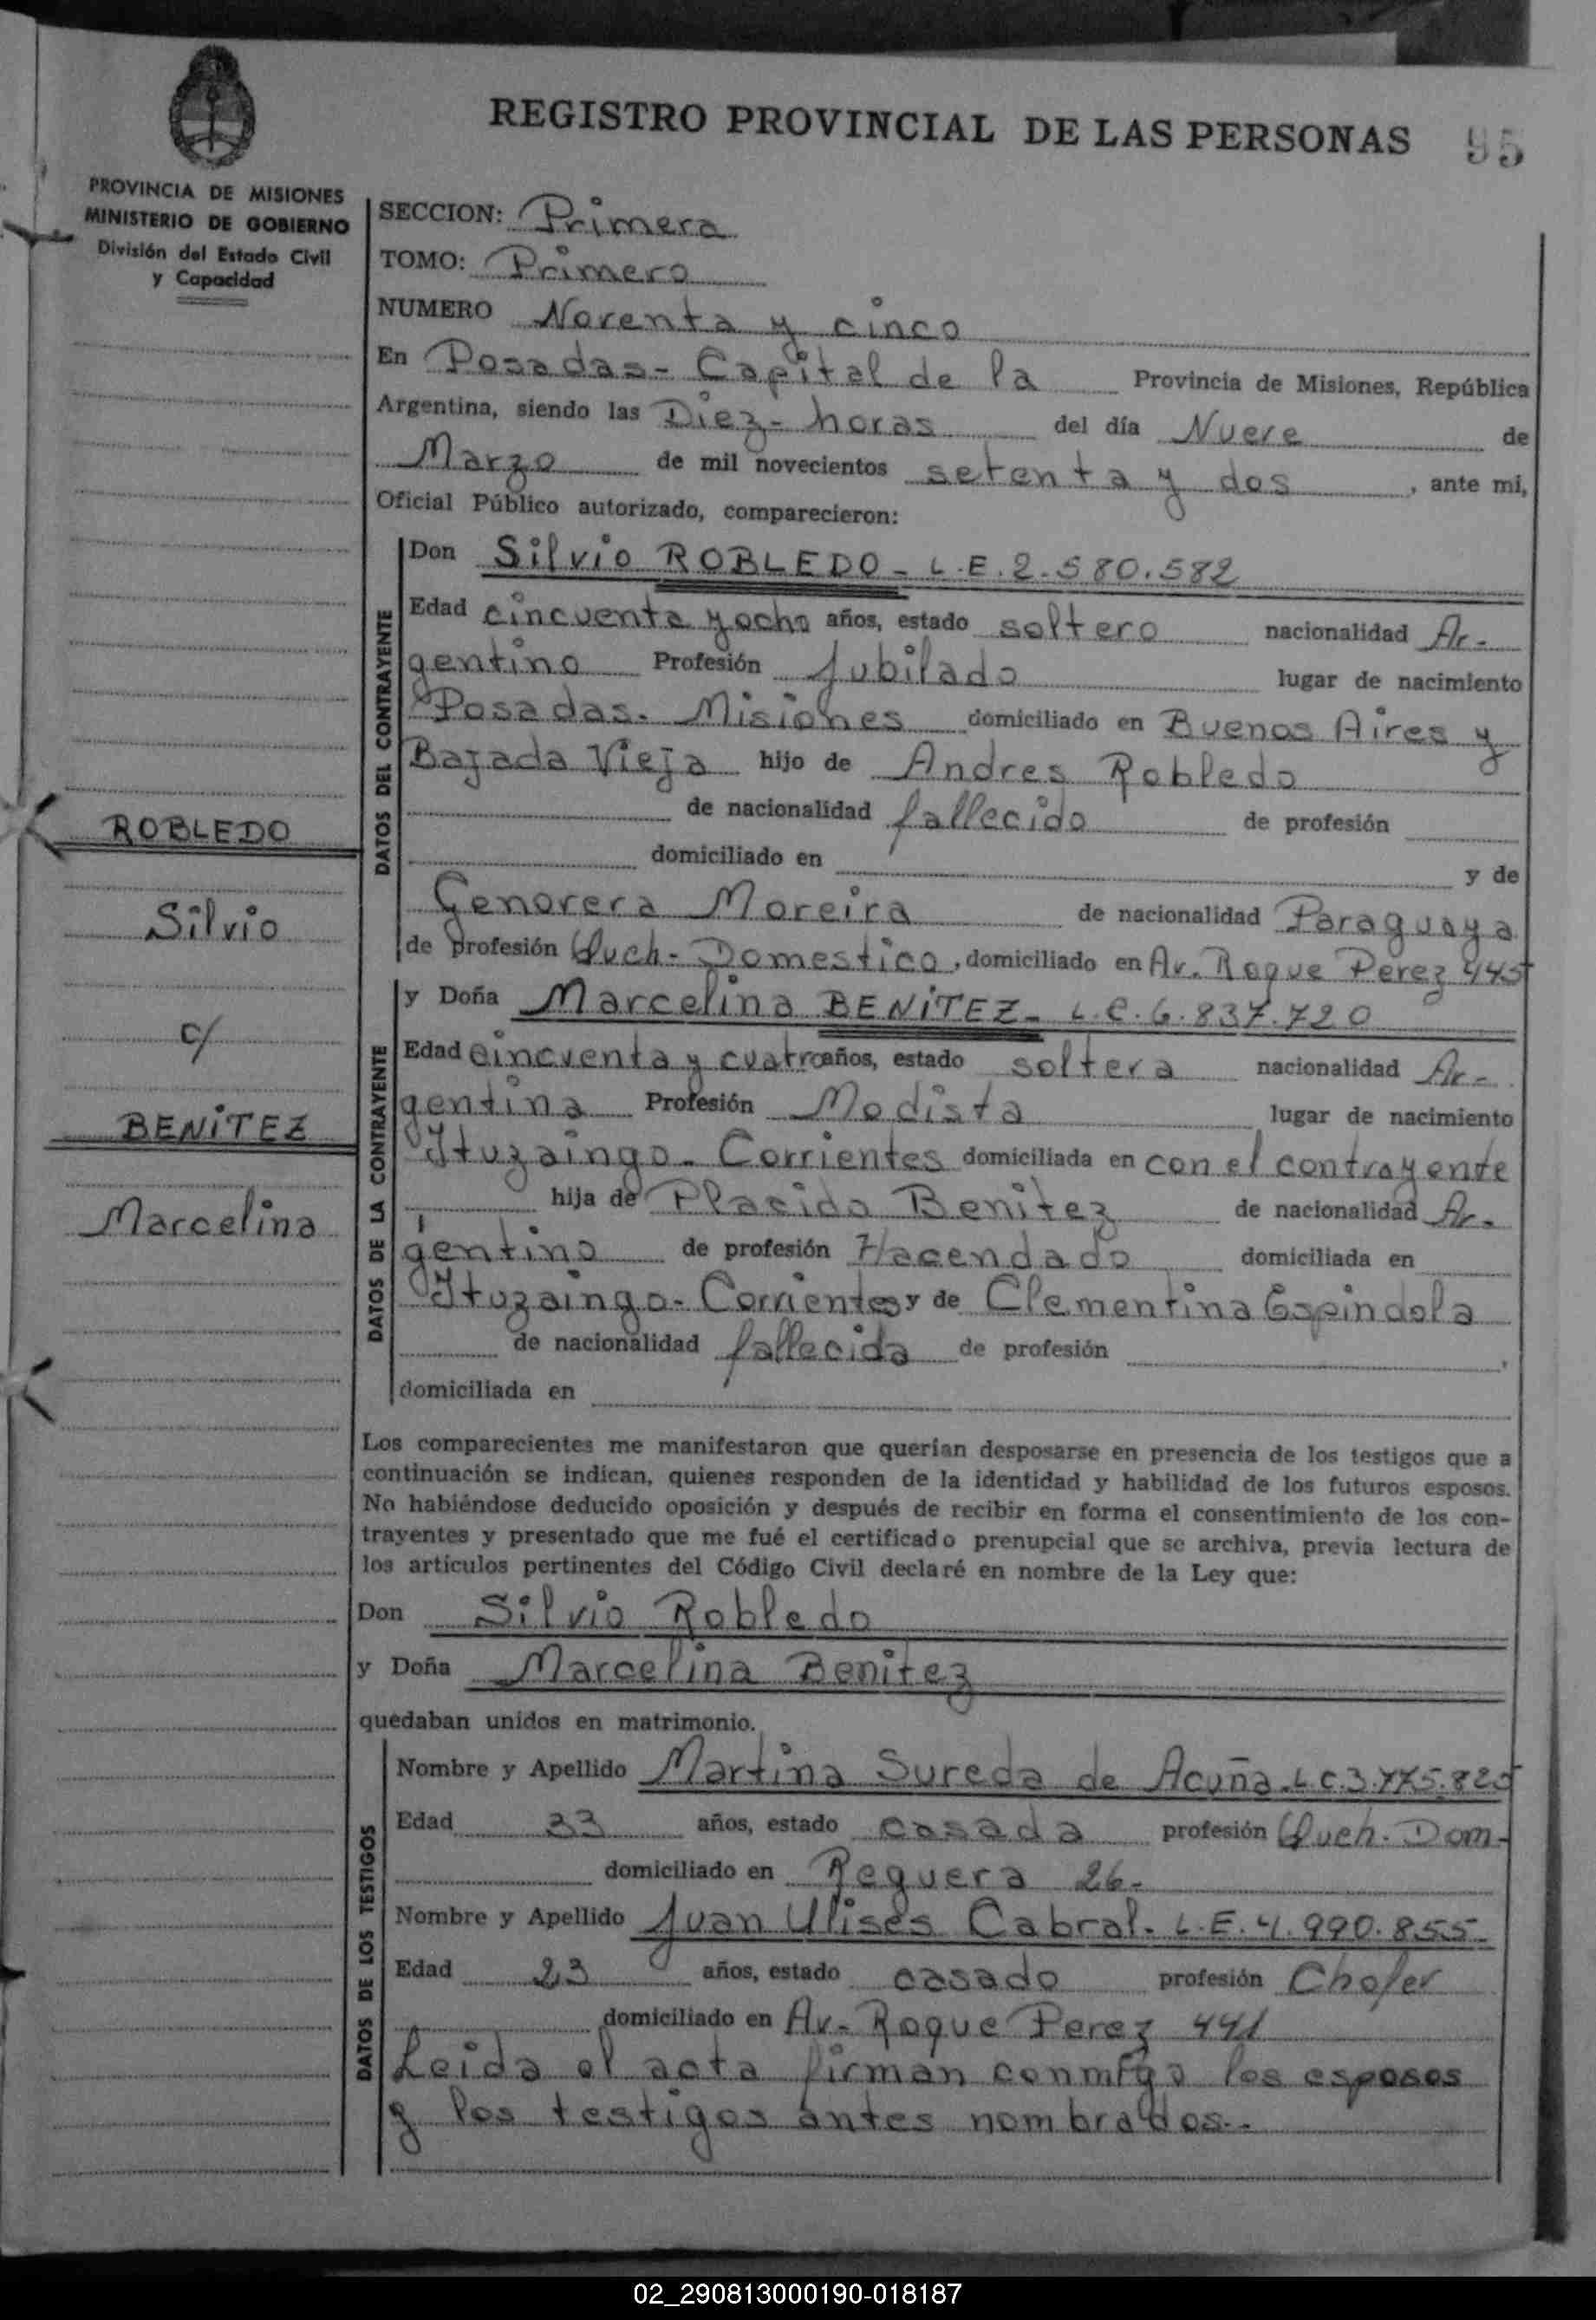 REGISTRO PROVINCIAL DE LAS PERSONAS 95
PROVINCIA DE MISIONES
MINISTERIO DE GOBIERNO
División del Estado Civil
y Capacidad
ROBLEDO
Silvio
c/
BENITEZ
Marcelina
SECCION: Primera
TOMO: Primero
NUMERO Noventa y cinco
En Posadas- Capital de la Provincia de Misiones, República
Argentina, siendo las Diez- horas del día Nueve de
Marzo de mil novecientos setenta y dos, ante mi,
Oficial Público autorizado, comparecieron:
DATOS DEL CONTRAYENTE
Don Silvio ROBLEDO - L.E. 2.580.582
Edad cincuenta y ocho años, estado soltero nacionalidad Ar-
gentino Profesión Jubilado lugar de nacimiento
Posadas. Misiones domiciliado en Buenos Aires y
Bajada Vieja hijo de Andres Robledo
de nacionalidad fallecido de profesión
domiciliado en y de
Genovera Moreira de nacionalidad Paraguaya
de profesión Quch- Domestico, domiciliado en Av. Roque Perez 445
DATOS DE LA CONTRAYENTE
y Doña Marcelina BENITEZ- L.C. 6.837.720
Edad cincuenta y cuatro años, estado soltera nacionalidad Ar-
gentina Profesión Modista lugar de nacimiento
Ituzaingo- Corrientes domiciliada en con el contrayente
hija de Placido Benitez de nacionalidad Ar-
gentino de profesión Hacendado domiciliada en
Ituzaingo- Corrientes y de Clementina Espindola
de nacionalidad fallecida de profesión
domiciliada en
Los comparecientes me manifestaron que querían desposarse en presencia de los testigos que a
continuación se indican, quienes responden de la identidad y habilidad de los futuros esposos.
No habiéndose deducido oposición y después de recibir en forma el consentimiento de los con-
trayentes y presentado que me fué el certificado prenupcial que se archiva, previa lectura de
los artículos pertinentes del Código Civil declaré en nombre de la Ley que:
Don Silvio Robledo
y Doña Marcelina Benitez
quedaban unidos en matrimonio.
DATOS DE LOS TESTIGOS
Nombre y Apellido Martina Sureda de Acuña. L.C. 3.775.825
Edad 33 años, estado casada profesión Quch. Dom-
domiciliado en Reguera 26-
Nombre y Apellido Juan Ulises Cabral. L.E. 4.990.855-
Edad 23 años, estado casado profesión Chofer
domiciliado en Av- Roque Perez 441
Leida el acta firman conmigo los esposos
y los testigos antes nombrados..
02_290813000190-018187